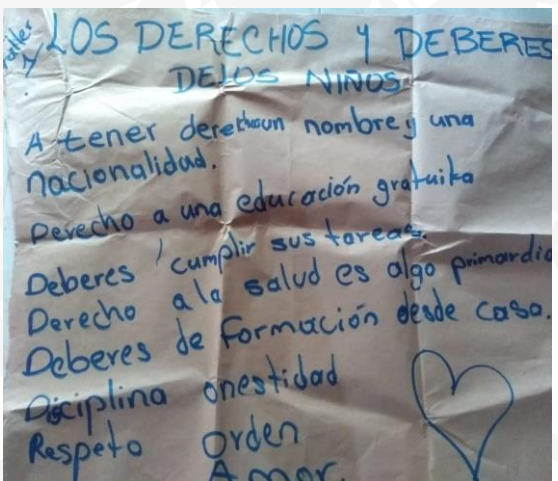 LOS DERECHOS Y DEBERES
DELOS NIÑOS
A tener derechoun nombre y una
nacionalidad.
Derecho a una educación gratuita
Deberes cumplir sus tareas.
Derecho ala salud es algo primordia
Deberes de formación desde casa.
Disciplina onestidad
Respeto orden
Amor.